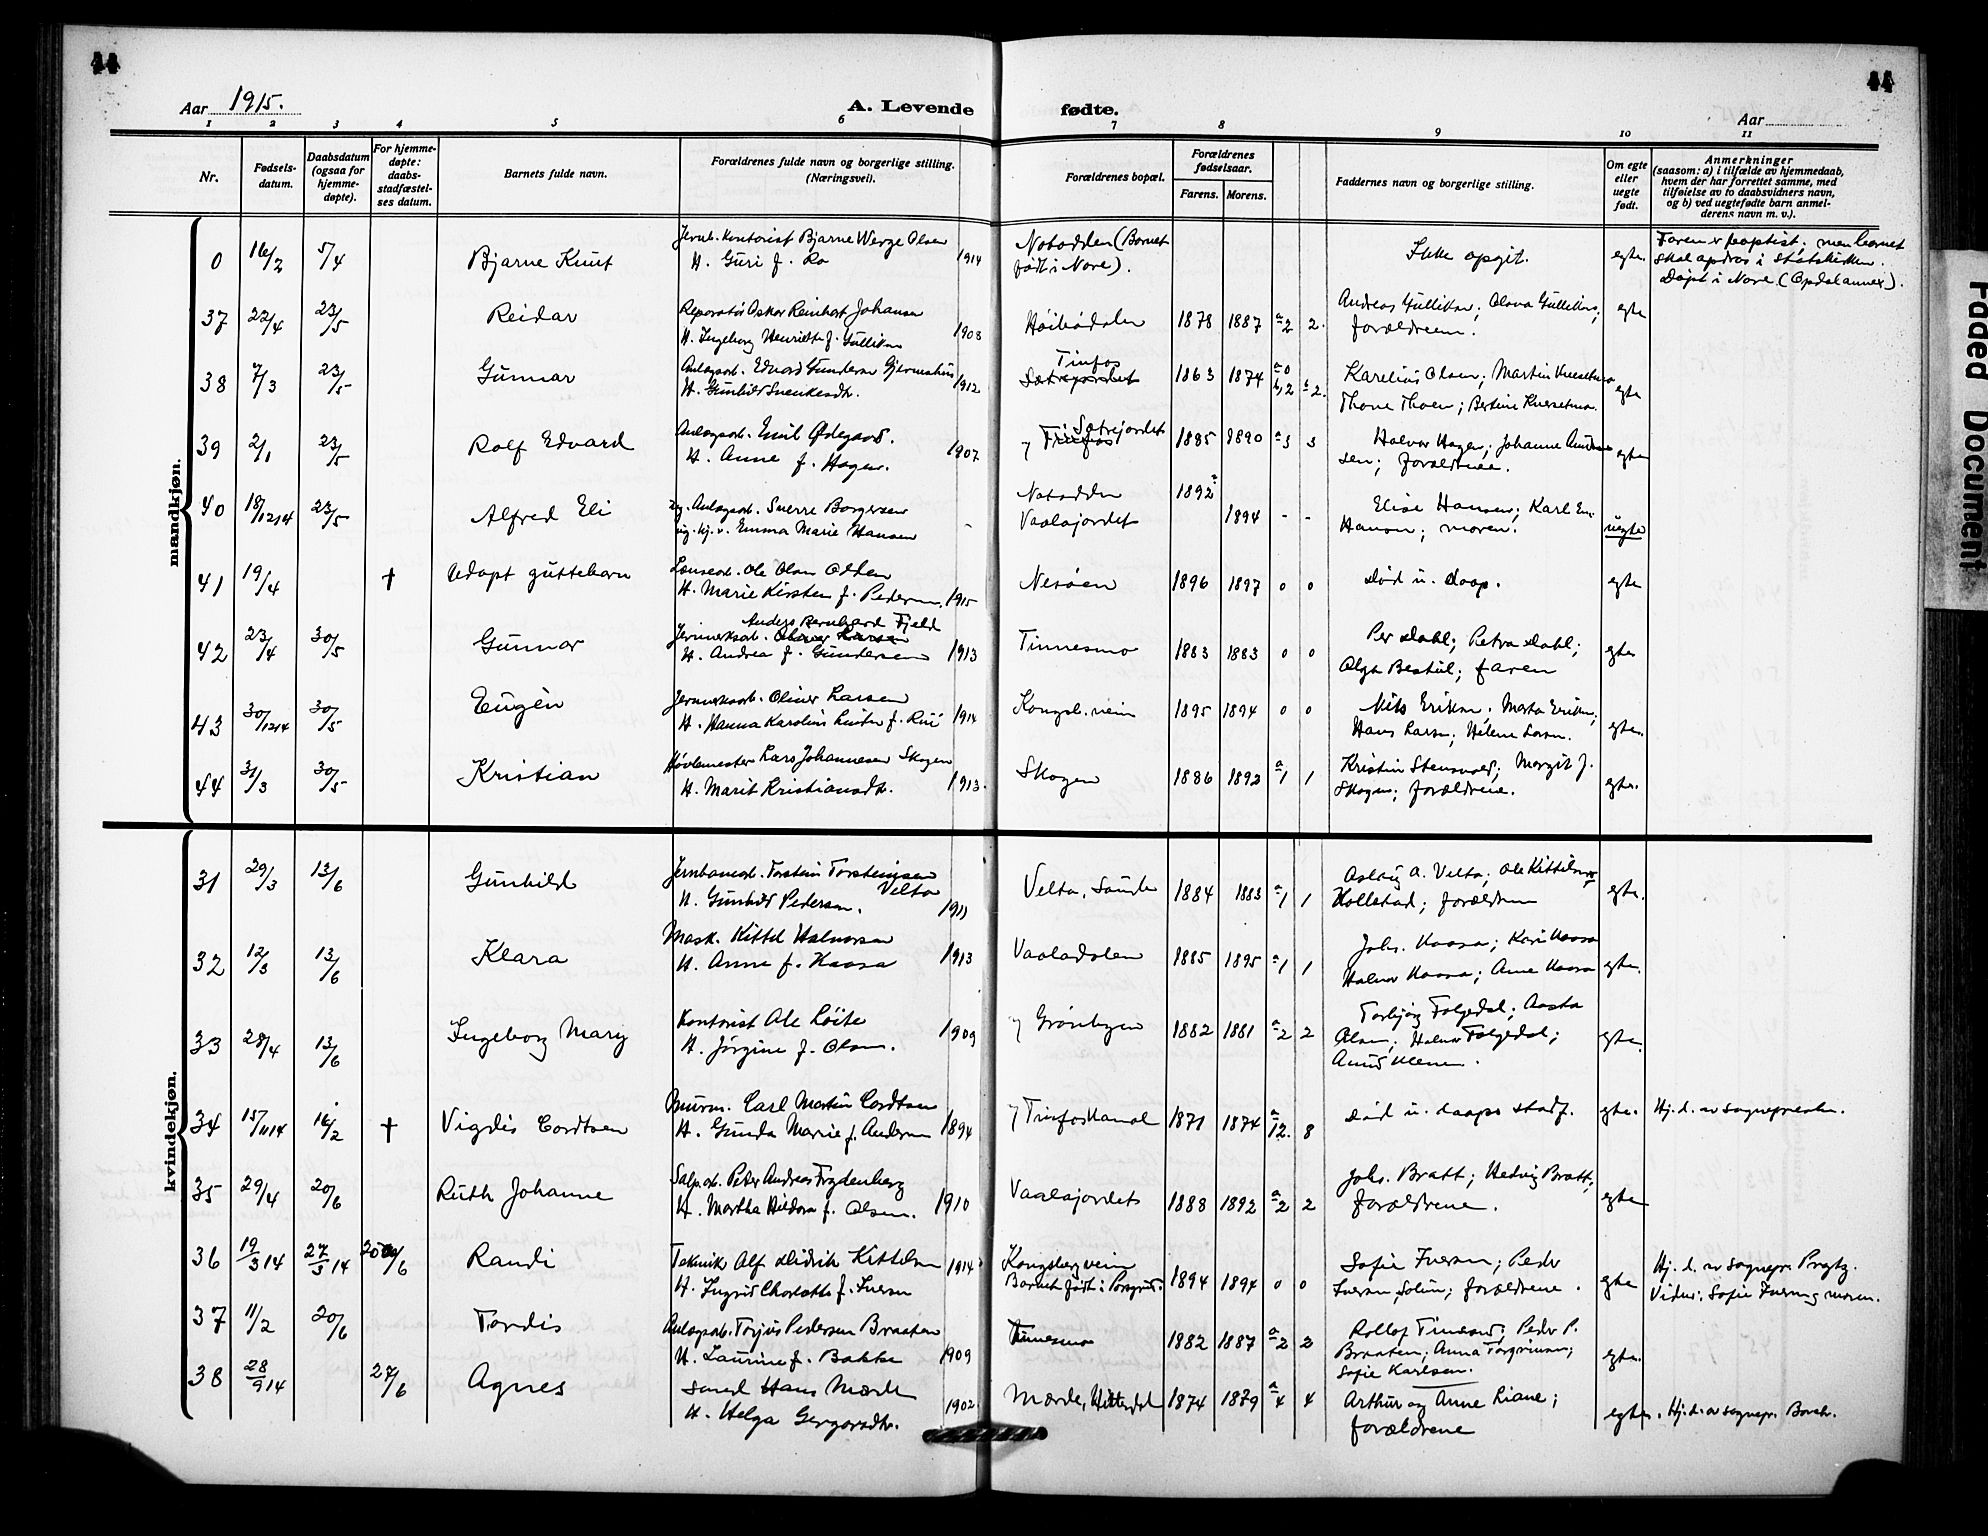 44
44
Aar 1915.
A. Levende fødte.
Aar
1 2 3 4 5 6 7 8 9 10 11
Nr.
Fødsels-
datum.
Daabsdatum
(ogsaa for
hjemme-
døpte).
For hjemme-
døpte:
daabs-
stadfæstel-
ses datum.
Barnets fulde navn.
Forældrenes fulde navn og borgerlige stilling.
(Næringsvei).
Forældrenes bopæl.
Forældrenes
fødselsaar.
Farens. Morens.
Faddernes navn og borgerlige stilling.
Om egte
eller
uegte
født.
Anmerkninger
(saasom: a) i tilfælde av hjemmedaab,
hvem der har forrettet samme, med
tilføielse av to daabsvidners navn,
og b) ved uegtefødte barn anmel-
derens navn m. v.).
mandkjøn.
0 16/2 5/4 Bjarne Knut
Jernb. kontorist Bjarne Werge Olsen
H. Guri f. Ro 1914
Notodden (Barnet
født i Nore).
Ikke opgit. egte.
Faren er baptist, men barnet
skal opdras i statskirken.
Døpt i Nore (Opdal annex).
37 22/4 23/5 Reidar
Reparatør Oskar Reinhart Johansen
H. Ingeborg Henriette f. Gulliksen 1908
Høibødalen 1878 1887 a 2 2.
Andreas Gulliksen; Olava Gulliksen;
forældrene. egte
38 7/3 23/5 Gunnar
Anlægsarb. Edvard Gundersen
H. Gunhild Svenkesdtr. 1912
Tinfos
Sætrejordet 1863 1874 a 0 b, 2 b 2.
Karelius Olsen; Martin
Thone Thoen; Bertine egte
39 2/1 23/5 Rolf Edvard
Anlægsarb. Emil Ødegaard.
H. Anne f. Hagen. 1907
Sætrejordet
Tinfos 1885 1890 a 3 3
Halvor Hagen; Johanne Ander-
sen; forældrene. egte
40 18/12 14 23/5 Alfred Eli
Ug. Anlægsarb. Sverre Borgersen
Ug. kj. v. Emma Marie Hansen -
Notodden 1892
Vaalajordet 1894 - -
Elise Hansen; Karl Em.
Hansen; moren. uegte
41 19/4 † Udøpt guttebarn
Lænsearb. Ole Olsen
H. Marie Kirsten f. Pedersen. 1915
Nesøen 1896 1897 0 0
død u. daap. egte
42 23/4 30/5 Gunnar
Anders Bernhard Fjeld
Jernverksarb. Oliver Larsen
H. Andrea f. Gundersen 1913
Tinnesmo 1883 1883 0 0
Per Dahl; Petra Dahl;
Olga Bestul; faren egte
43 30/12 14 30/5 Eugén
Jernverksarb. Oliver Larsen
H. Hanna Karoline f. Rui 1914
Kongsb.veien 1895 1894 0 0
Nils Eriksen. Marta Eriksen;
Hans Larsen; Helene Larsen. egte.
44 31/3 30/5 Kristian
Høvlemester Lars Johannesen Skogen
H. Marit Kristiansdtr. 1913.
Skogen 1886 1892 a 1 1
Kristine Stensrud; Margit J.
Skogen; forældrene. egte.
kvindekjøn.
31 29/3 13/6 Gunhild
Jernbanearb. Torstein Torsteinsen
Velta
H. Gunhild Pedersen. 1911
Velta, Saude 1884 1883 a 1 1
Aslaug A. Velta; Ole Kittilsen
Kollstad; forældrene egte.
32 12/3 13/6 Klara
Mask. Kittil Halvorsen
H. Anne f. Haasa 1913
Vaaladalen 1885 1895 a 1 1
Johs. Haasa; Kari Haasa
Halvor Haasa; Anne Haasa egte.
33 28/4 13/6 Ingeborg Mary
Kontorist Ole Løite
H. Jørgine f. Olsen. 1909
Grønbyen 1882 1881 a 2 2
Torbjørg Folgedal; Aasta
Olsen; Halvor Folgedal;
egte.
34 15/11 14 16/2 † Vigdis Cordtsen
Murm. Carl Martin Cordtsen
H. Gunda Marie f. Andersen 1894
Tinfoskanal 1871 1874 a 12. 8
død u. daaps stadf. egte. Hj. d. av sognepresten.
35 29/4 20/6 Ruth Johanne
Salp.arb. Peter Andreas Frydenberg
H. Martha Hildora f. Olsen. 1910
Vaalajordet 1888 1892 a 2 2
Johs. Bratt; Hedvig Bratt;
forældrene. egte
36 19/3 14 27/3 14 20/6 Randi
Tekniker Alf Didrik Kittilsen 1914
H. Ingrid Charlotte f. Iversen
Kongsbergveien
Barnet født i Porsgrund. 1894 1894 0 0
Sofie Iversen; Peder
Iversen, Solum; forældrene. egte
Hj. d. av sognepr. Prytz.
Vidner: Sofie Iversen og moren.
37 11/2 20/6 Tordis
Anlægsarb. Torjus Pedersen Braaten
H. Laurine f. Bakke 1909
Tinnesmo 1882 1887 a 2 2
Rollof Tinesand; Peder P.
Braaten; Anna Torgrimsen;
Sofie Karlsen. egte.
38 28/9 14 27/6 Agnes
Smed Hans Mærde
H. Helga Gergarsdtr. 1902
Mærde, Hitterdal 1874 1879 a 4 4
Arthur og Anne Liane;
forældrene egte. Hj. d. av sognepr. Borch.
Faded Document